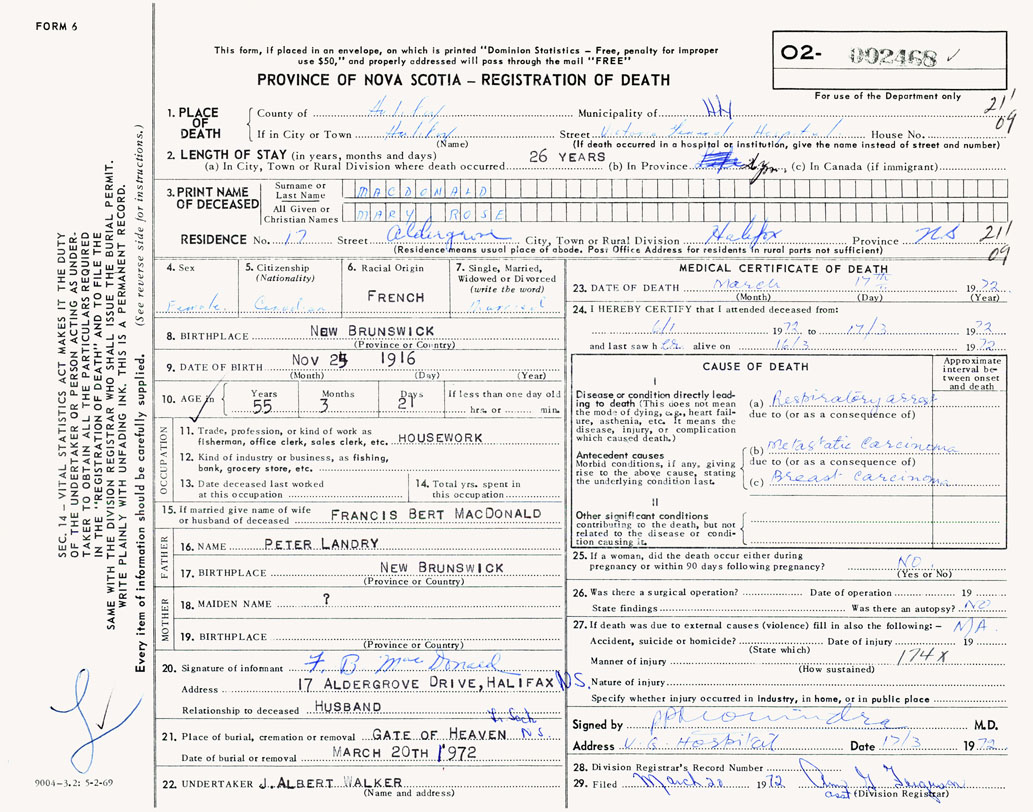 FORM 6
This form, if placed in an envelope, on which is printed "Dominion Statistics – Free, penalty for improper
use $50," and properly addressed will pass through the mail "FREE"
PROVINCE OF NOVA SCOTIA – REGISTRATION OF DEATH
02- 002468 ✓
For use of the Department only
21'
09
1. PLACE OF DEATH { County of Halifax Municipality of
If in City or Town Halifax Street Victoria General Hospital House No.
(Name) (If death occurred in a hospital or institution, give the name instead of street and number)
2. LENGTH OF STAY (in years, months and days) 26 YEARS
(a) In City, Town or Rural Division where death occurred (b) In Province (c) In Canada (if immigrant)
3. PRINT NAME OF DECEASED
Surname or Last Name MACDONALD
All Given or Christian Names MARY ROSE
RESIDENCE No. 17 Street Aldergrove City, Town or Rural Division Halifax Province NS 21'
(Residence means usual place of abode. Post Office Address for residents in rural ports not sufficient) 09
4. Sex
Female
5. Citizenship
(Nationality)
Canadian
6. Racial Origin
FRENCH
7. Single, Married,
Widowed or Divorced
(write the word)
Married
8. BIRTHPLACE NEW BRUNSWICK
(Province or Country)
9. DATE OF BIRTH NOV 25 1916
(Month) (Day) (Year)
10. AGE in Years Months Days If less than one day old
55 3 21 hrs. or min.
OCCUPATION
11. Trade, profession, or kind of work as
fisherman, office clerk, sales clerk, etc. HOUSEWORK
12. Kind of industry or business, as fishing,
bank, grocery store, etc.
13. Date deceased last worked
at this occupation
14. Total yrs. spent in
this occupation
15. If married give name of wife
or husband of deceased FRANCIS BERT MACDONALD
FATHER
16. NAME PETER LANDRY
17. BIRTHPLACE NEW BRUNSWICK
(Province or Country)
MOTHER
18. MAIDEN NAME ?
19. BIRTHPLACE
(Province or Country)
20. Signature of informant F. B. MacDonald
Address 17 ALDERGROVE DRIVE, HALIFAX N.S.
Relationship to deceased HUSBAND
21. Place of burial, cremation or removal GATE OF HEAVEN L. Sack N.S.
Date of burial or removal MARCH 20TH 1972
22. UNDERTAKER J. ALBERT WALKER
(Name and address)
MEDICAL CERTIFICATE OF DEATH
23. DATE OF DEATH March 17th 1972
(Month) (Day) (Year)
24. I HEREBY CERTIFY that I attended deceased from:
6/1 1972 to 17/3 1972
and last saw her alive on 16/3 1972
CAUSE OF DEATH
Approximate
interval be-
tween onset
and death
I
Disease or condition directly lead-
ing to death (This does not mean
the mode of dying, e.g., heart fail-
ure, asthenia, etc. It means the
disease, injury, or complication
which caused death.)
(a) Respiratory arrest
due to (or as a consequence of)
Antecedent causes
Morbid conditions, if any, giving
rise to the above cause, stating
the underlying condition last.
(b) Metastatic Carcinoma
due to (or as a consequence of)
(c) Breast Carcinoma
II
Other significant conditions
contributing to the death, but not
related to the disease or condi-
tion causing it.
25. If a woman, did the death occur either during
pregnancy or within 90 days following pregnancy? NO
(Yes or No)
26. Was there a surgical operation? Date of operation 19
State findings Was there an autopsy? NO
27. If death was due to external causes (violence) fill in also the following: – N/A
Accident, suicide or homicide? Date of injury 19
(State which)
Manner of injury 174X
(How sustained)
Nature of injury
Specify whether injury occurred in industry, in home, or in public place
Signed by M.D.
Address V. G. Hospital Date 17/3 1972
28. Division Registrar's Record Number
29. Filed March 20 1972 Ferguson
asst (Division Registrar)
SEC. 14 – VITAL STATISTICS ACT MAKES IT THE DUTY
OF THE UNDERTAKER OR PERSON ACTING AS UNDER-
TAKER TO OBTAIN ALL THE PARTICULARS REQUIRED
IN THE "REGISTRATION OF DEATH" AND TO FILE THE
SAME WITH THE DIVISION REGISTRAR WHO SHALL ISSUE THE BURIAL PERMIT.
WRITE PLAINLY WITH UNFADING INK. THIS IS A PERMANENT RECORD.
Every item of information should be carefully supplied. (See reverse side for instructions.)
9004-3.2: 5-2-69